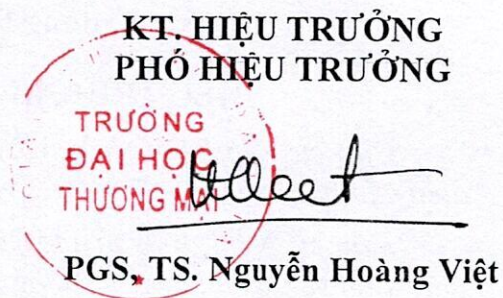 KT. HIỆU TRƯỞNG
PHÓ HIỆU TRƯỞNG
TRƯỜNG
ĐẠI HỌC
THƯƠNG MẠI
PGS, TS. Nguyễn Hoàng Việt